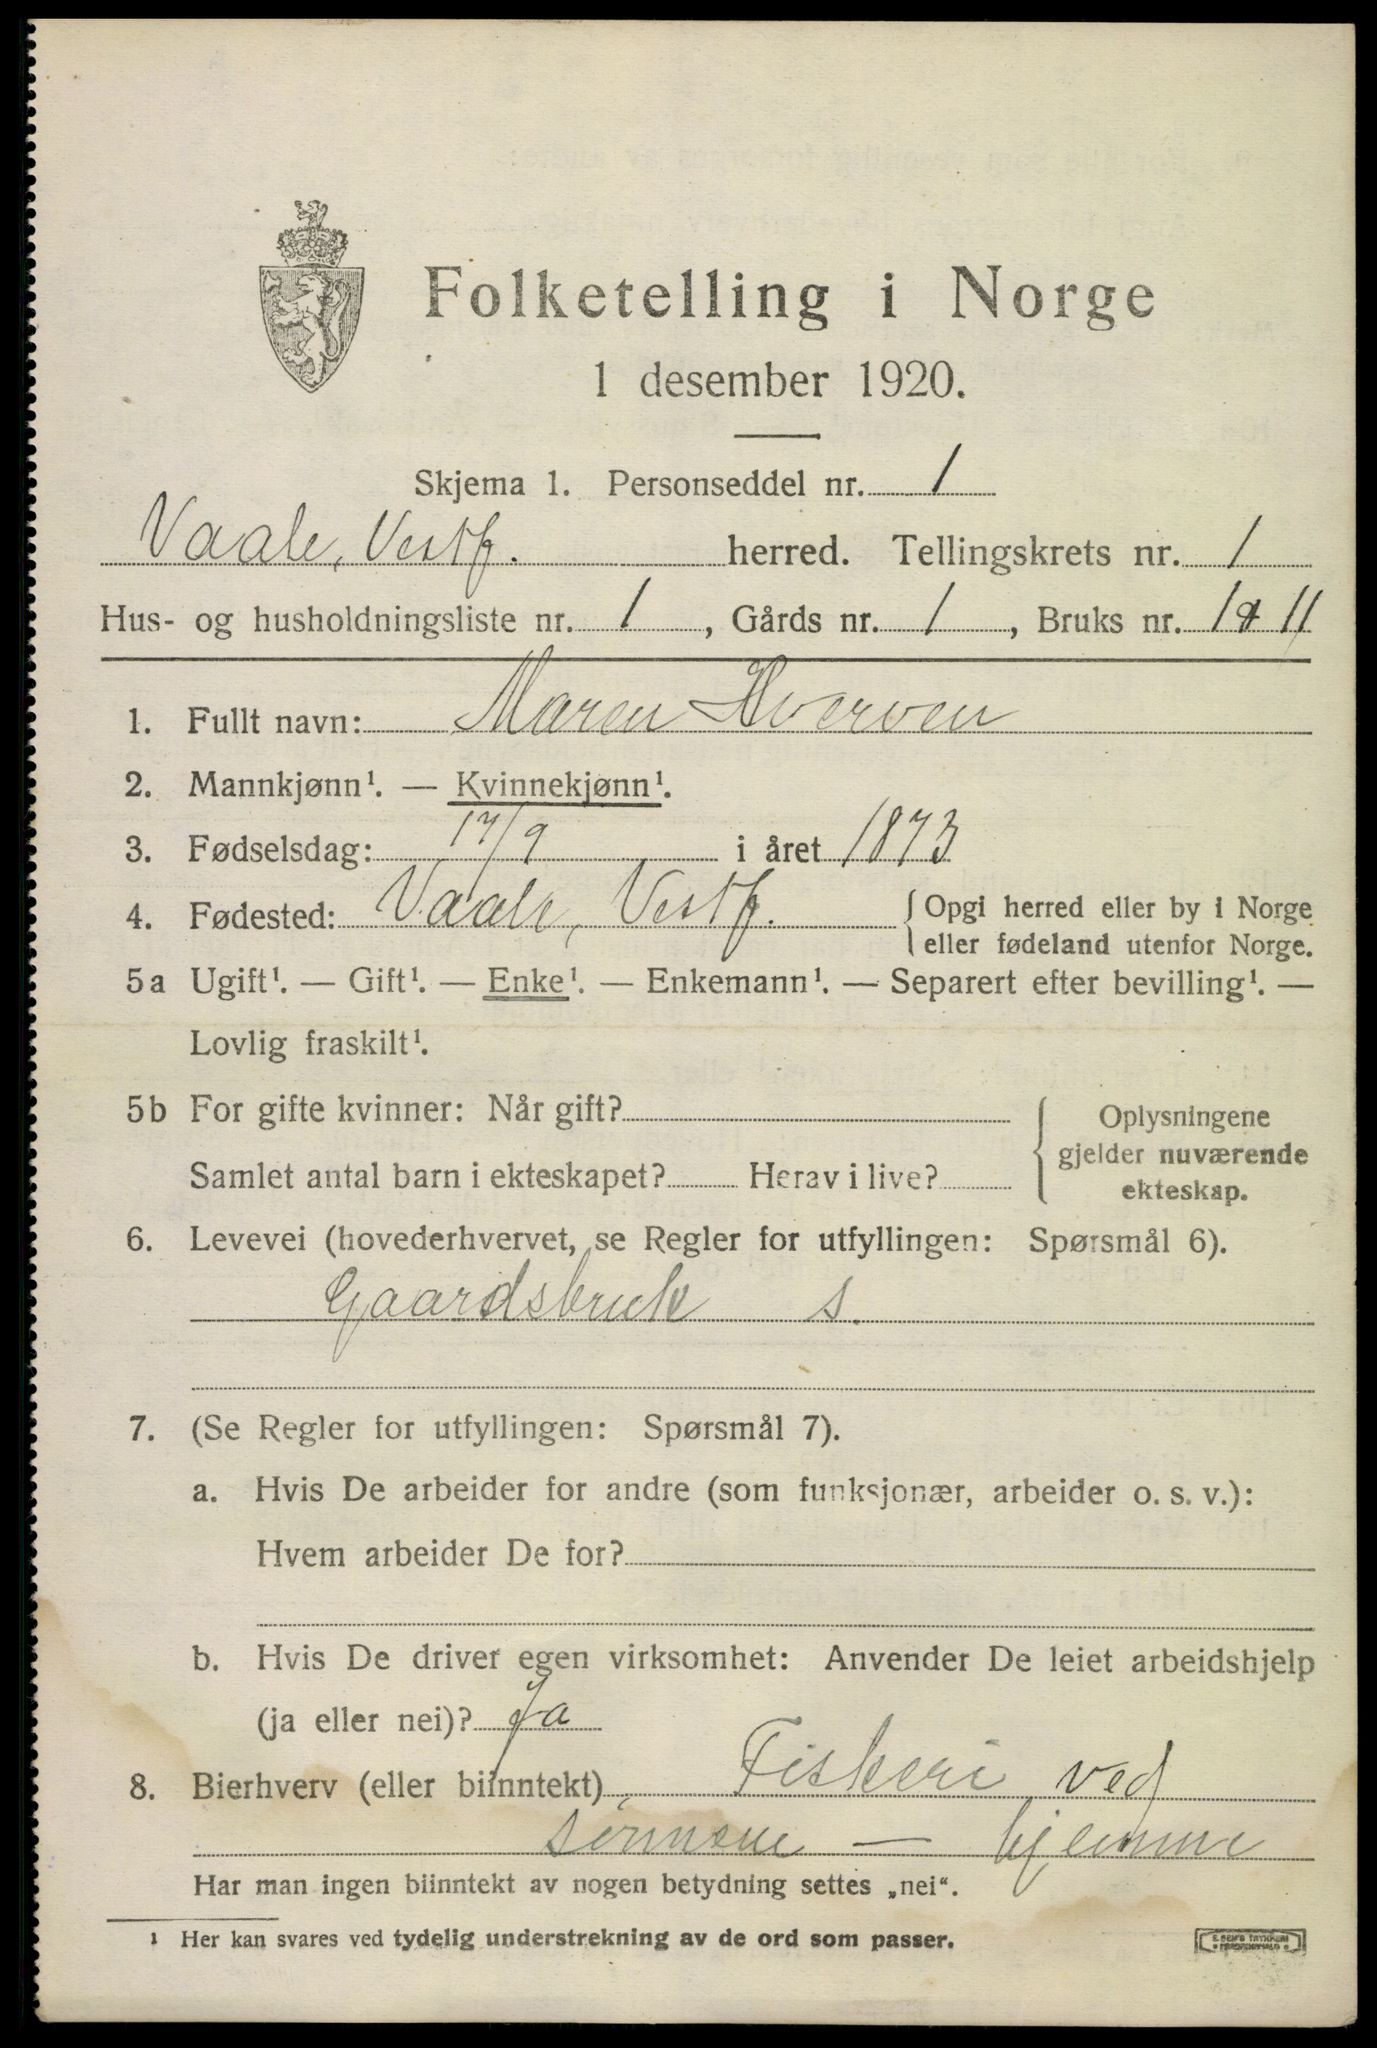 Folketelling i Norge
1 desember 1920.
Skjema 1. Personseddel nr. 1
Vaale, Vestf. herred. Tellingskrets nr. 1
Hus- og husholdningsliste nr. 1, Gårds nr. 1, Bruks nr. 11
1. Fullt navn: Maren Hverven
2. Mannkjønn¹. — Kvinnekjønn¹.
3. Fødselsdag: 17/9 i året 1873
4. Fødested: Vaale, Vestf. {Opgi herred eller by i Norge
eller fødeland utenfor Norge.
5a Ugift¹. — Gift¹. — Enke¹. — Enkemann¹. — Separert efter bevilling¹. —
Lovlig fraskilt¹.
5b For gifte kvinner: Når gift? Oplysningene
gjelder nuværende
Samlet antal barn i ekteskapet? Herav i live? ekteskap.
6. Levevei (hovederhvervet, se Regler for utfyllingen: Spørsmål 6).
Gaardsbruk s.
7. (Se Regler for utfyllingen: Spørsmål 7).
a. Hvis De arbeider for andre (som funksjonær, arbeider o. s. v.):
Hvem arbeider De for?
b. Hvis De driver egen virksomhet: Anvender De leiet arbeidshjelp
(ja eller nei)? Ja
8. Bierhverv (eller biinntekt) Fiskeri ved
sønnene — hjemme
Har man ingen biinntekt av nogen betydning settes „nei".
¹ Her kan svares ved tydelig understrekning av de ord som passer.